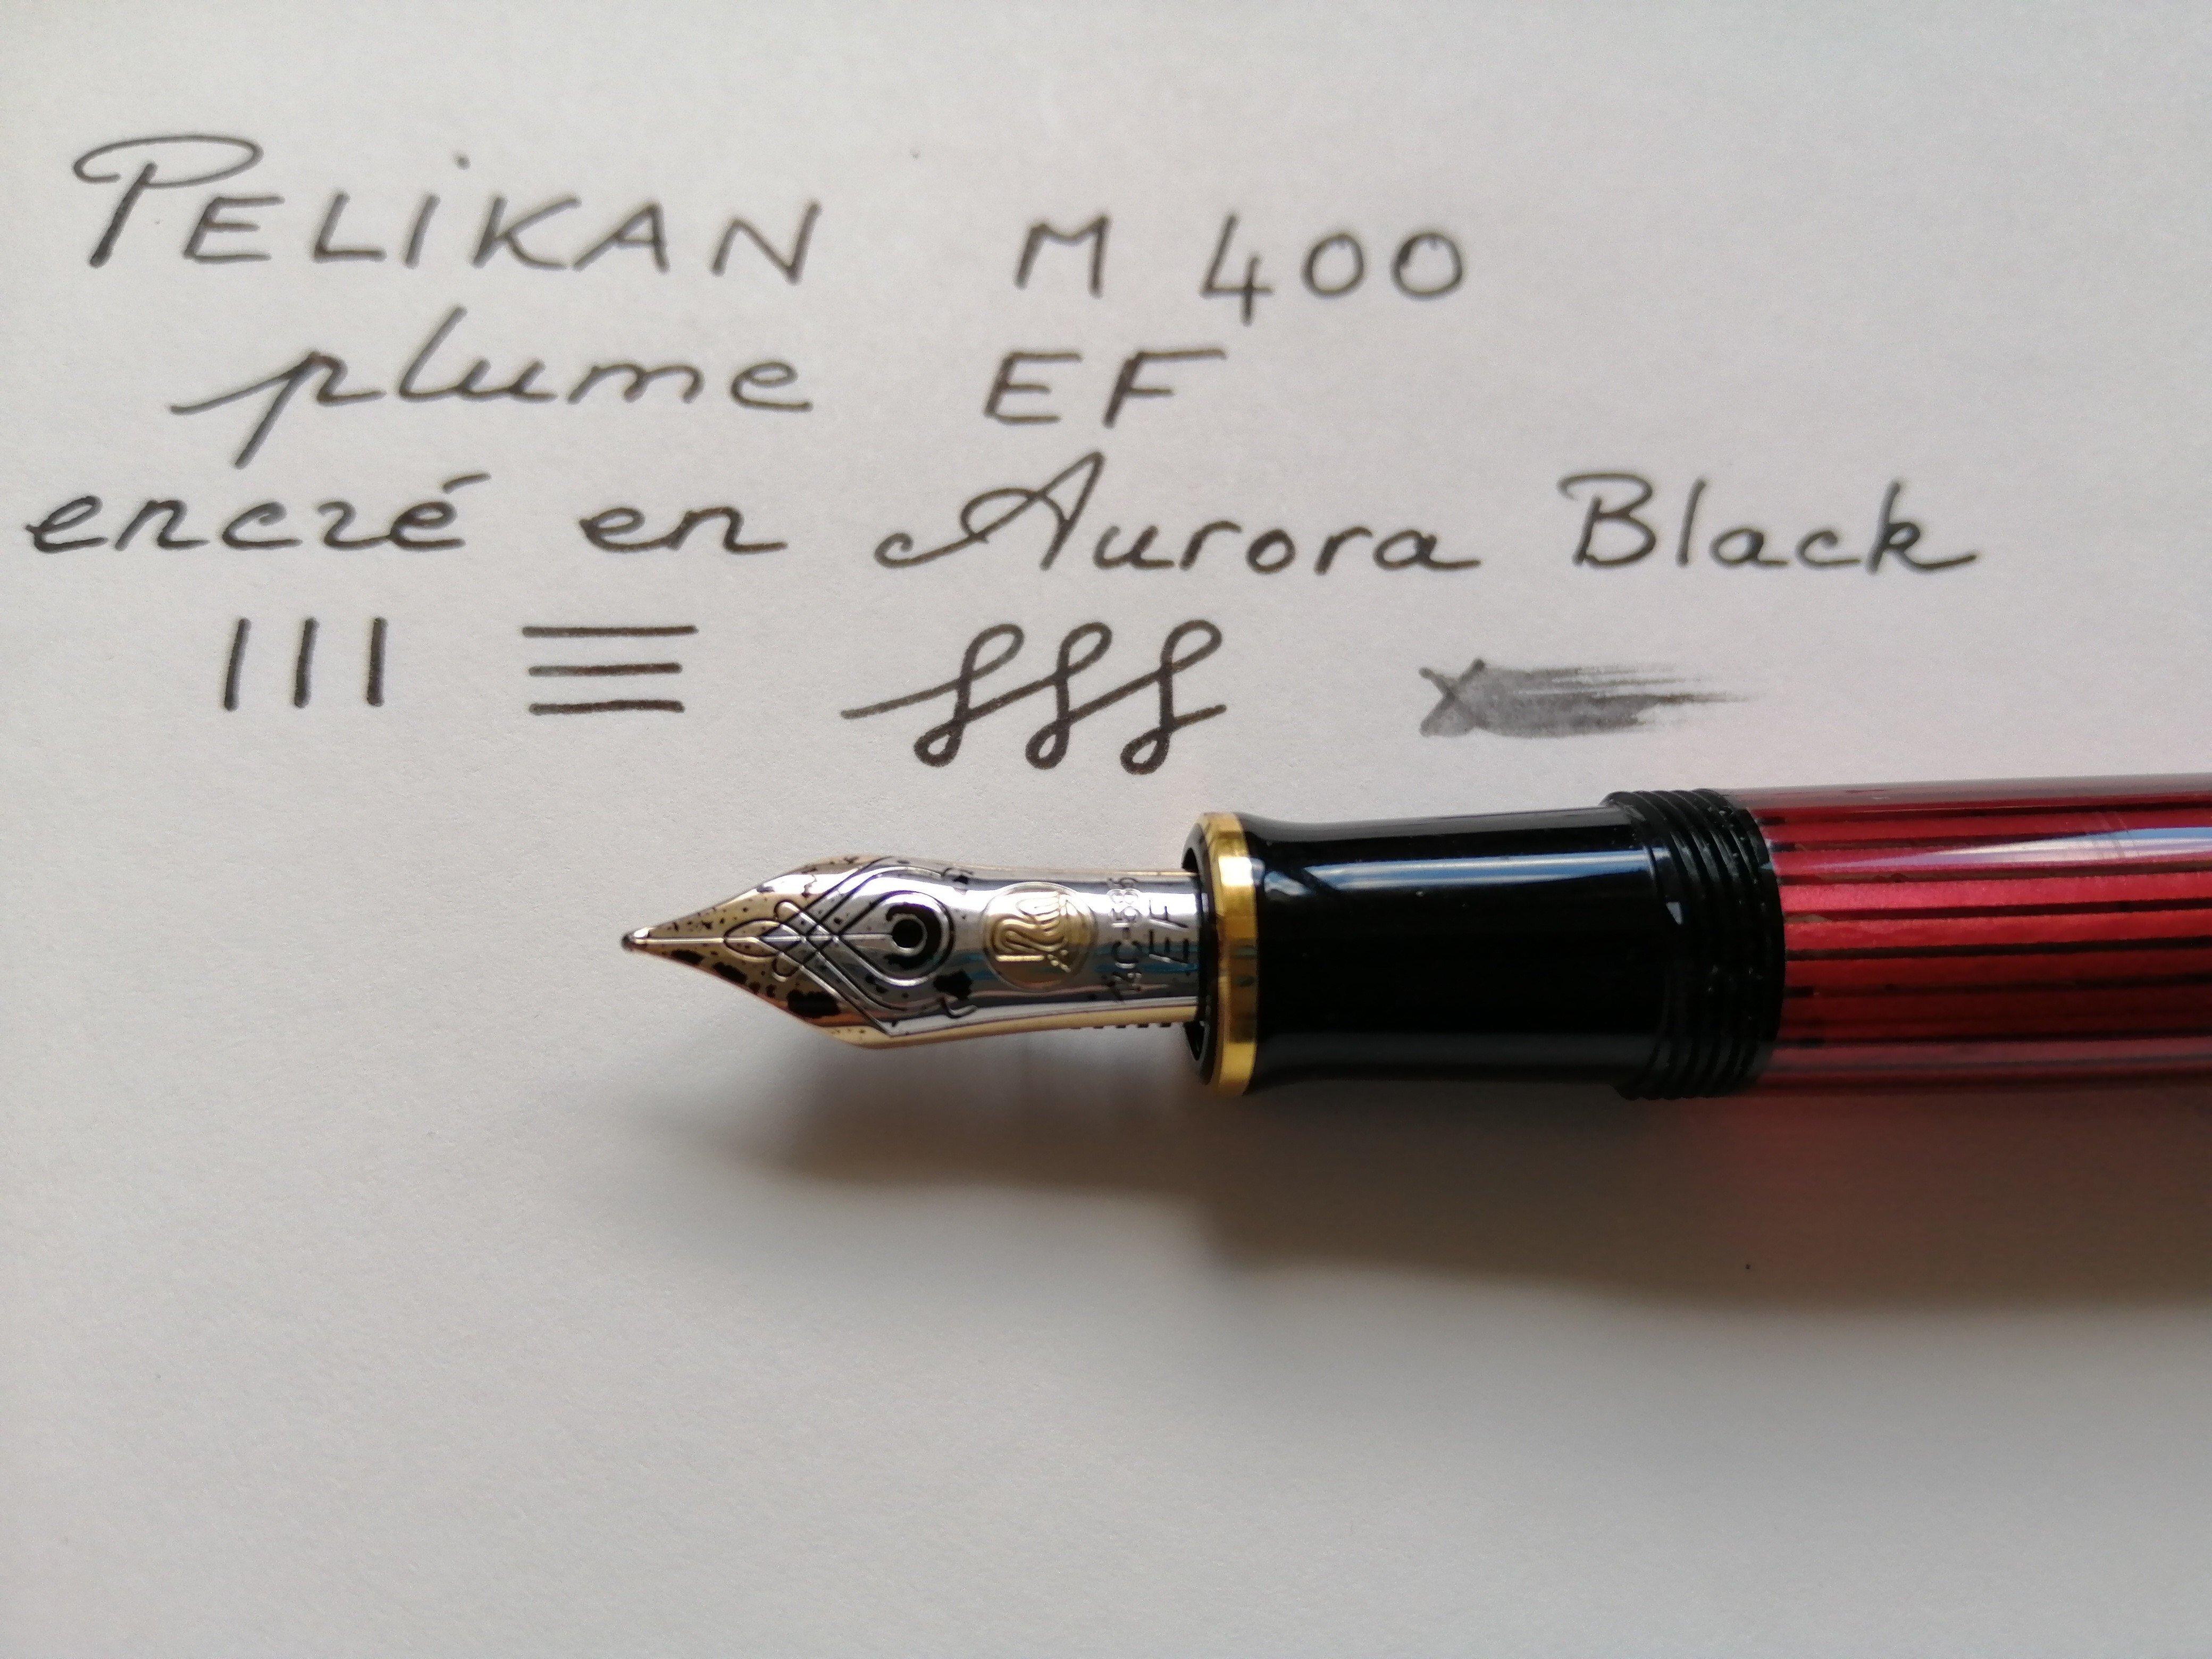 PELIKAN M 400
plume EF
encré en Aurora Black
14C-585
EF